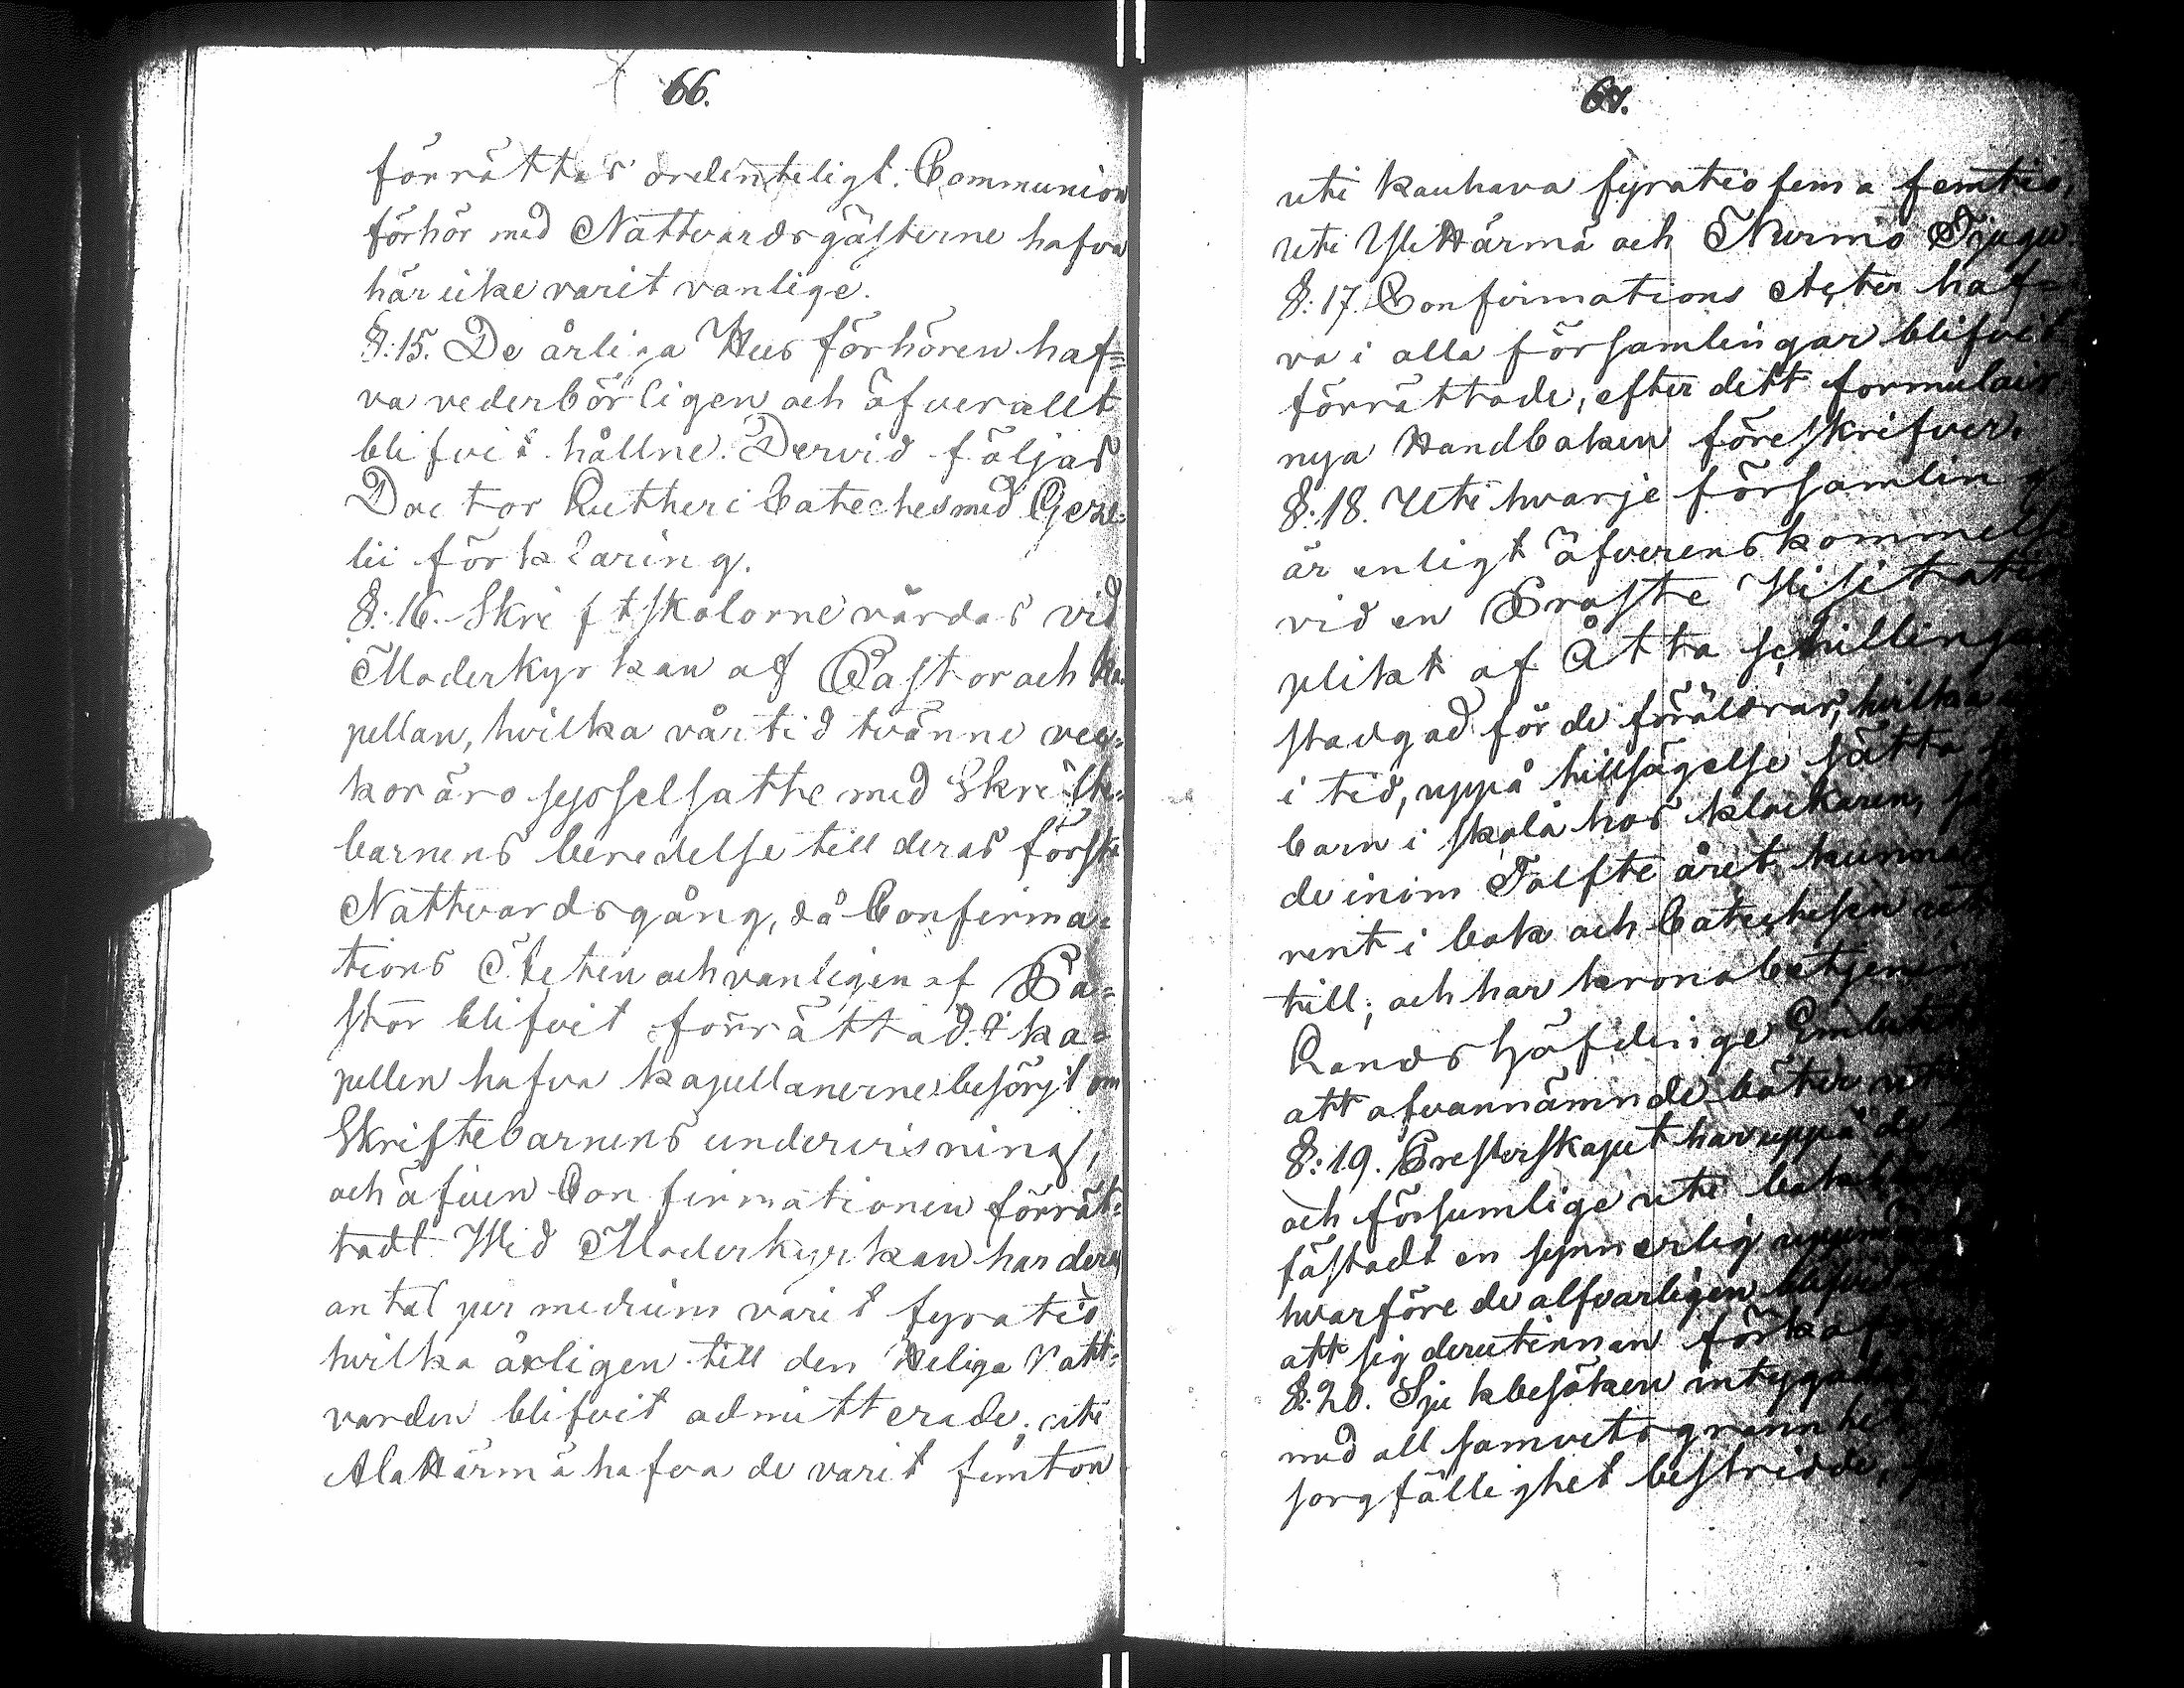 66.
förrättas ordenteligt. Communion
förhör med Nattvardsgästerne hafva
här icke varit vanlige.
§: 15. De årliga Hus förhören haf=
va vederbörligen och öfverallt
blifvit hållne. Dervid följas
Doctor Lutheri Cateches med Geze=
lii förklaring.
§: 16. Skriftskolorne vårdas vid
Moderkyrkan af Pastor och Ka
pellan, hvilka vårtid tvänne vec=
kor äro sysselsatte med Skrifte=
barnens beredelse till deras första
Nattvardsgång, då Confirma=
tions Acten och vanligen af Pa=
stor blifvit förrättad. I ka=
pellen hafva kapellanerne besörjt om
Skriftebarnens undervisning,
och äfven Confirmationen förrät=
tadt. Wid Moderkyrkan har deras
antal per medium varit fyratio
hvilka årligen till den Heliga Natt=
varden blifvit admitterade; uti
Ala Härmä hafva de varit femton
67.
uti Kauhava fyratiofem a femtio,
uti Yli Härmä och Nurmo Tjugu
§: 17. Confirmations Acter haf=
va i alla församlingar blifvit
förrättade, efter dett formulair
nya Handboken föreskrifver.
§: 18. Uti hvarje församling
är enligt öfverenskommelse
vid en Proste Visitation
plikt af Åtta schillingar
stadgad för de föräldrar, hvilka
i tid, uppå tillsägelse sätta
barn i skola hos klockaren,
de inom Tolfte året kunna
rent i bok och Catechesen
till; och har kronobetjening
Landshöfdinge Embetet
att ofvannämnde böter
§: 19. Presterskapet har uppå de
och försumlige uti
fästadt en synnerlig
hvarföre de alfvarligen blifvit
att sig derutinnan förkofra
§: 20. Sjukbesöken intygades
med all samvetsgrannhet
sorgfällighet bestridde,